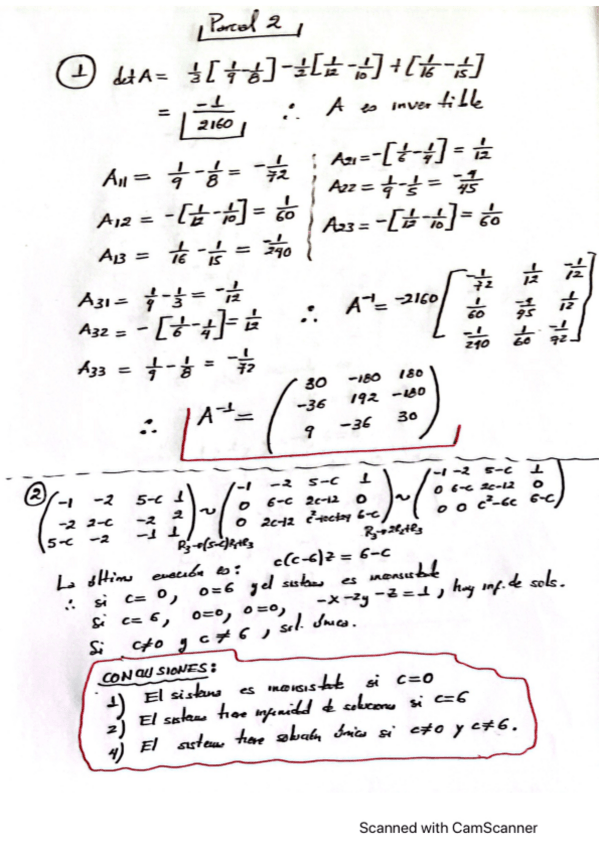 Parcial 2
① det A = 1/3[1/9 - 1/8] - 1/2[1/12 - 1/10] + [1/16 - 1/15]
= -1/2160 ∴ A es invertible
A11 = 1/9 - 1/8 = -1/72
A12 = -[1/12 - 1/10] = 1/60
A13 = 1/16 - 1/15 = -1/240
A21 = -[1/6 - 1/4] = 1/12
A22 = 1/9 - 1/5 = -4/45
A23 = -[1/12 - 1/10] = 1/60
A31 = 1/4 - 1/3 = -1/12
A32 = -[1/6 - 1/4] = 1/12
A33 = 1/9 - 1/8 = -1/72
∴ A⁻¹ = -2160
[-1/72 1/12 -1/12
1/60 -4/45 1/12
-1/240 1/60 -1/72]
∴ A⁻¹ =
(30 -180 180
-36 192 -180
9 -36 30)
②
(-1 -2 5-c 1
-2 2-c -2 2
5-c -2 -1 1) ~
(-1 -2 5-c 1
0 6-c 2c-12 0
0 2c-12 c²-10c+24 6-c) ~
(-1 -2 5-c 1
0 6-c 2c-12 0
0 0 c²-6c 6-c)
R3→(5-c)R1+R3
R3→2R2+R3
La última ecuación es: c(c-6)z = 6-c
∴ si c = 0, 0=6 y el sistema es inconsistente
Si c = 6, 0=0, 0=0, -x-2y-z=1, hay inf. de sols.
Si c≠0 y c≠6, sol. única.
CONCLUSIONES:
1) El sistema es inconsistente si c=0
2) El sistema tiene infinidad de soluciones si c=6
4) El sistema tiene solución única si c≠0 y c≠6.
Scanned with CamScanner